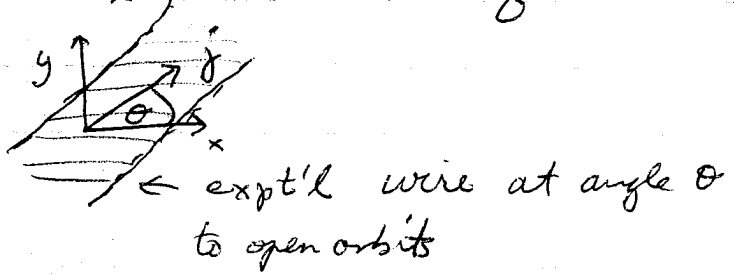 y
j
θ
x
← expt'l wire at angle θ
to open orbits